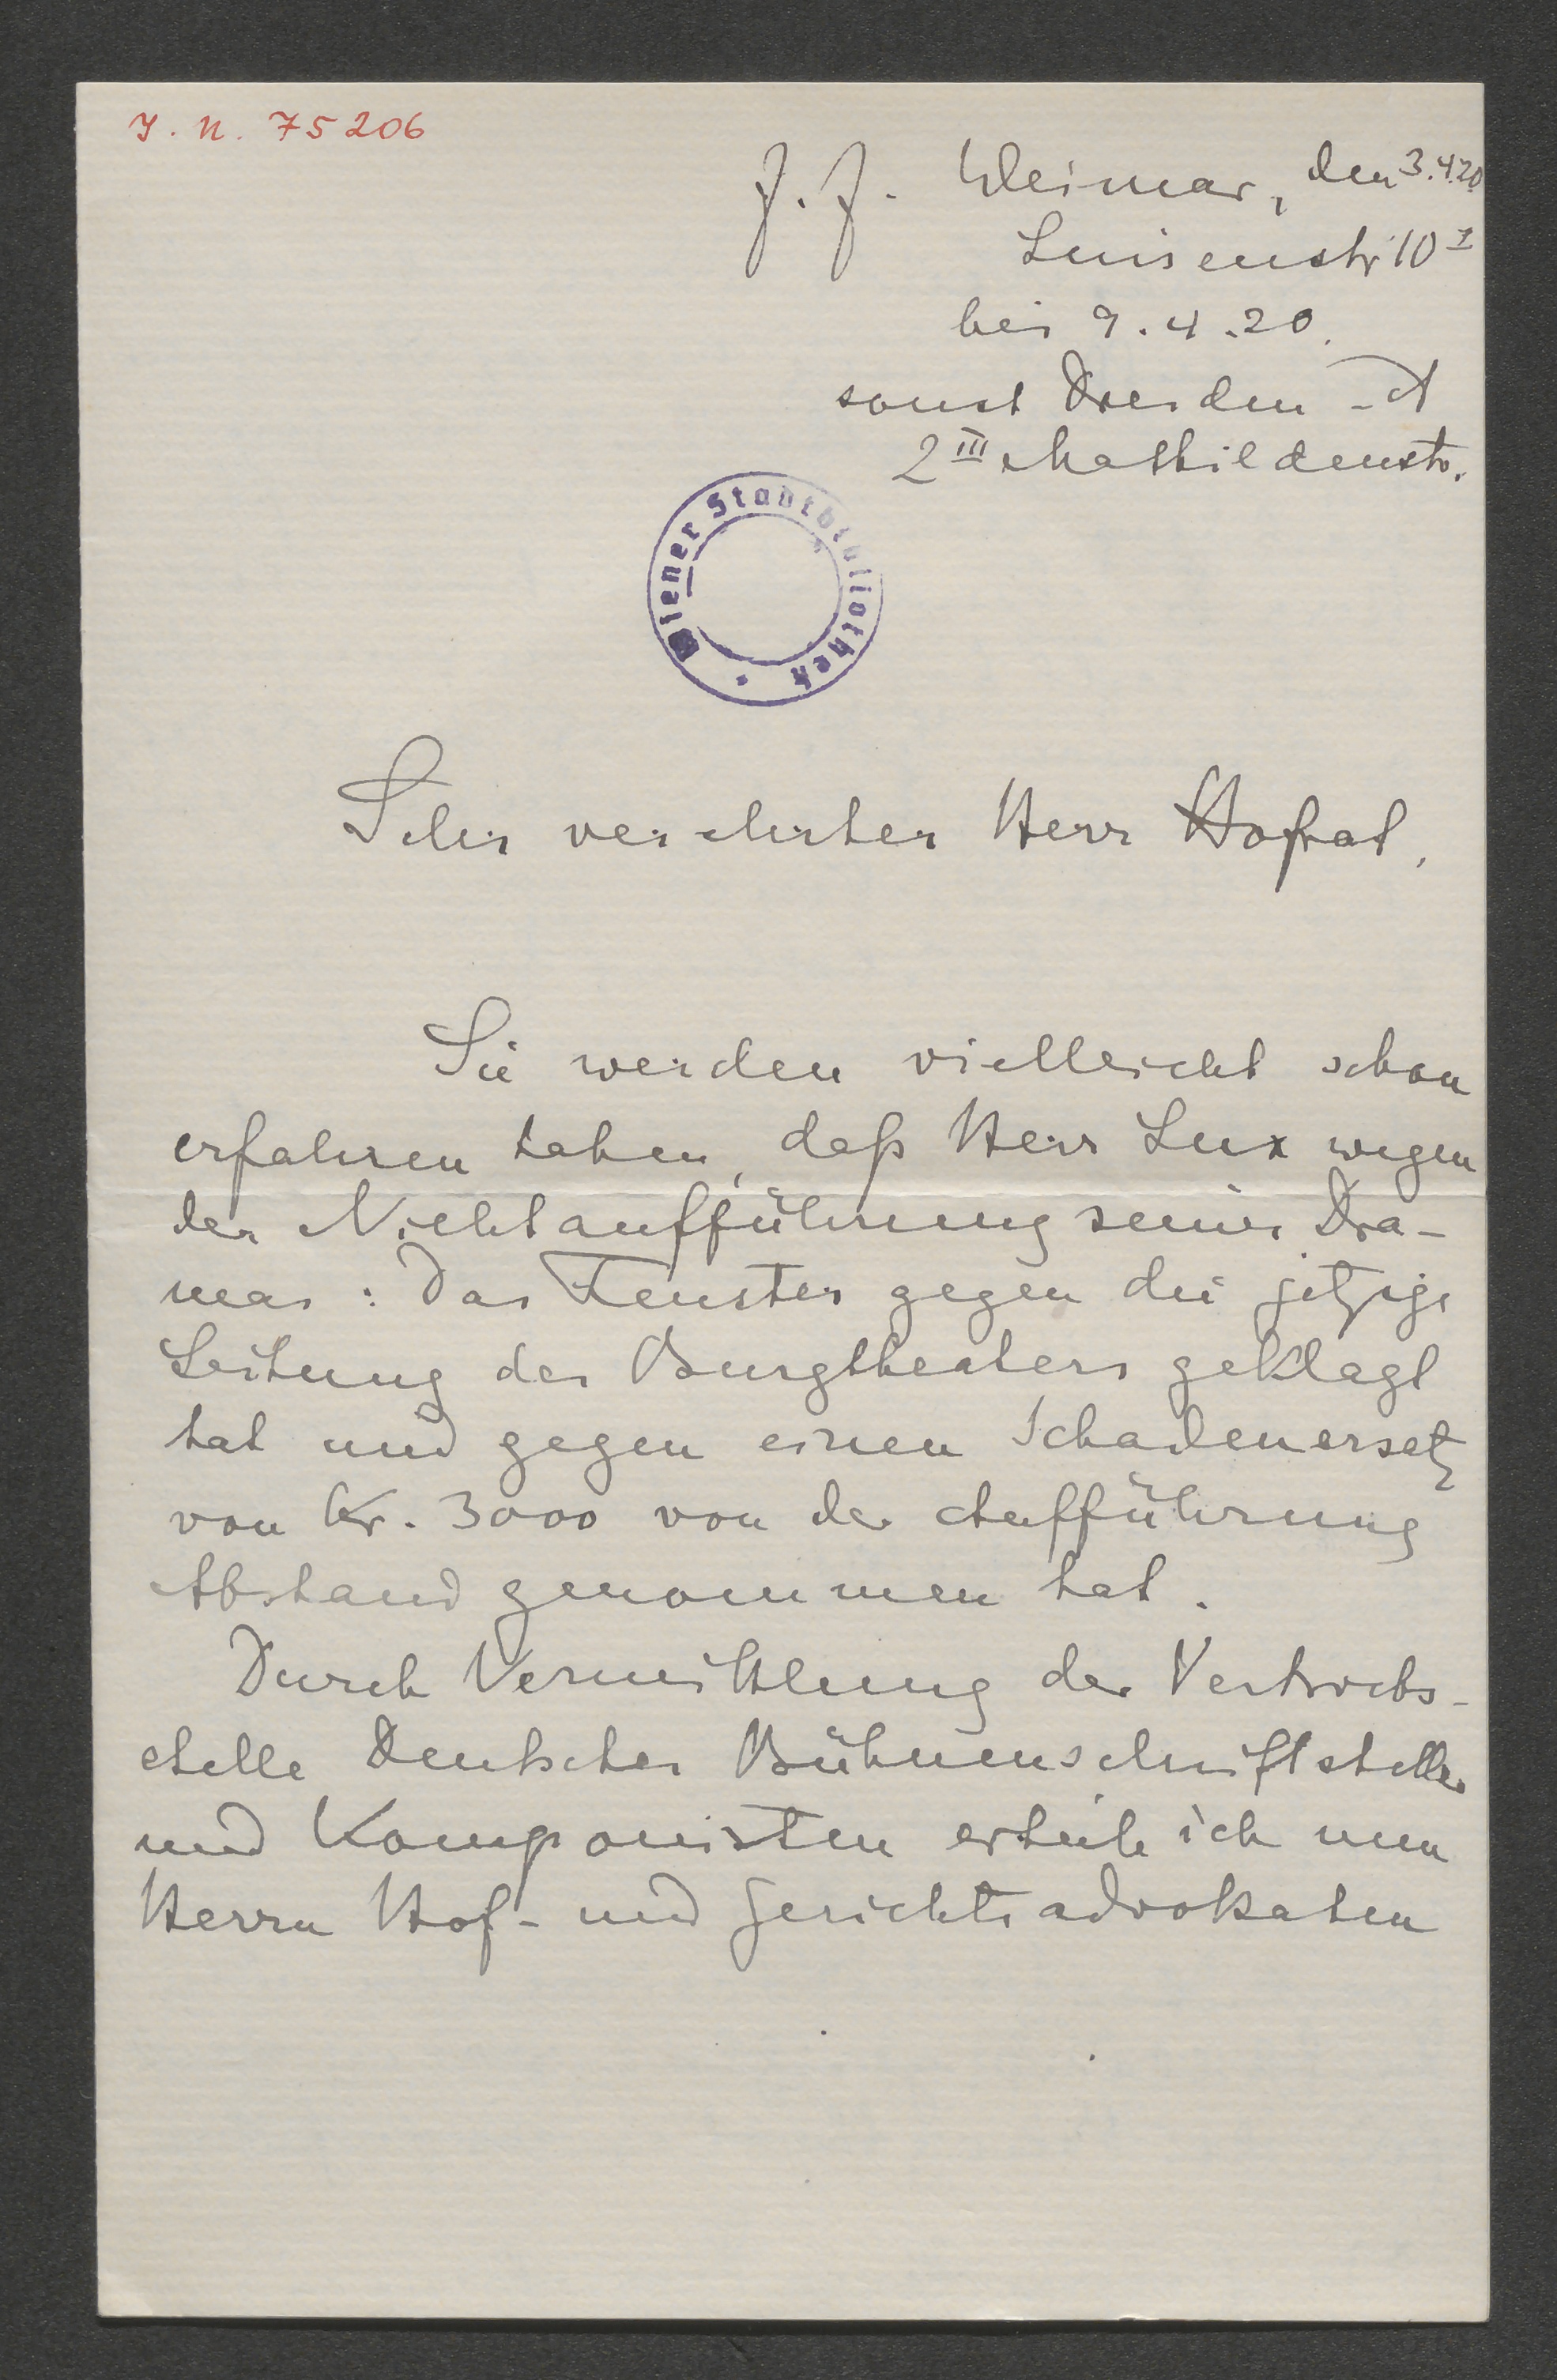 J. N. 75206
z. Z. Weimar, den 3.4.20
Luisenstr 10 I
bis 9.4.20.
sonst Dresden - A
2 III Mathildenstr.
Wiener Stadtbibliothek
Sehr verehrter Herr Hofrat,
Sie werden vielleicht schon
erfahren haben, daß Herr Lux wegen
der Nichtaufführung seines Dra-
mas: Das Fenster gegen die jetzige
Leitung des Burgtheaters geklagt
hat und gegen einen Schadenersatz
von Kr. 3000 von der Aufführung
Abstand genommen hat.
Durch Vermittlung der Vertriebs-
stelle Deutscher Bühnenschriftsteller
und Komponisten erteile ich nun
Herrn Hof- und Gerichtsadvokaten